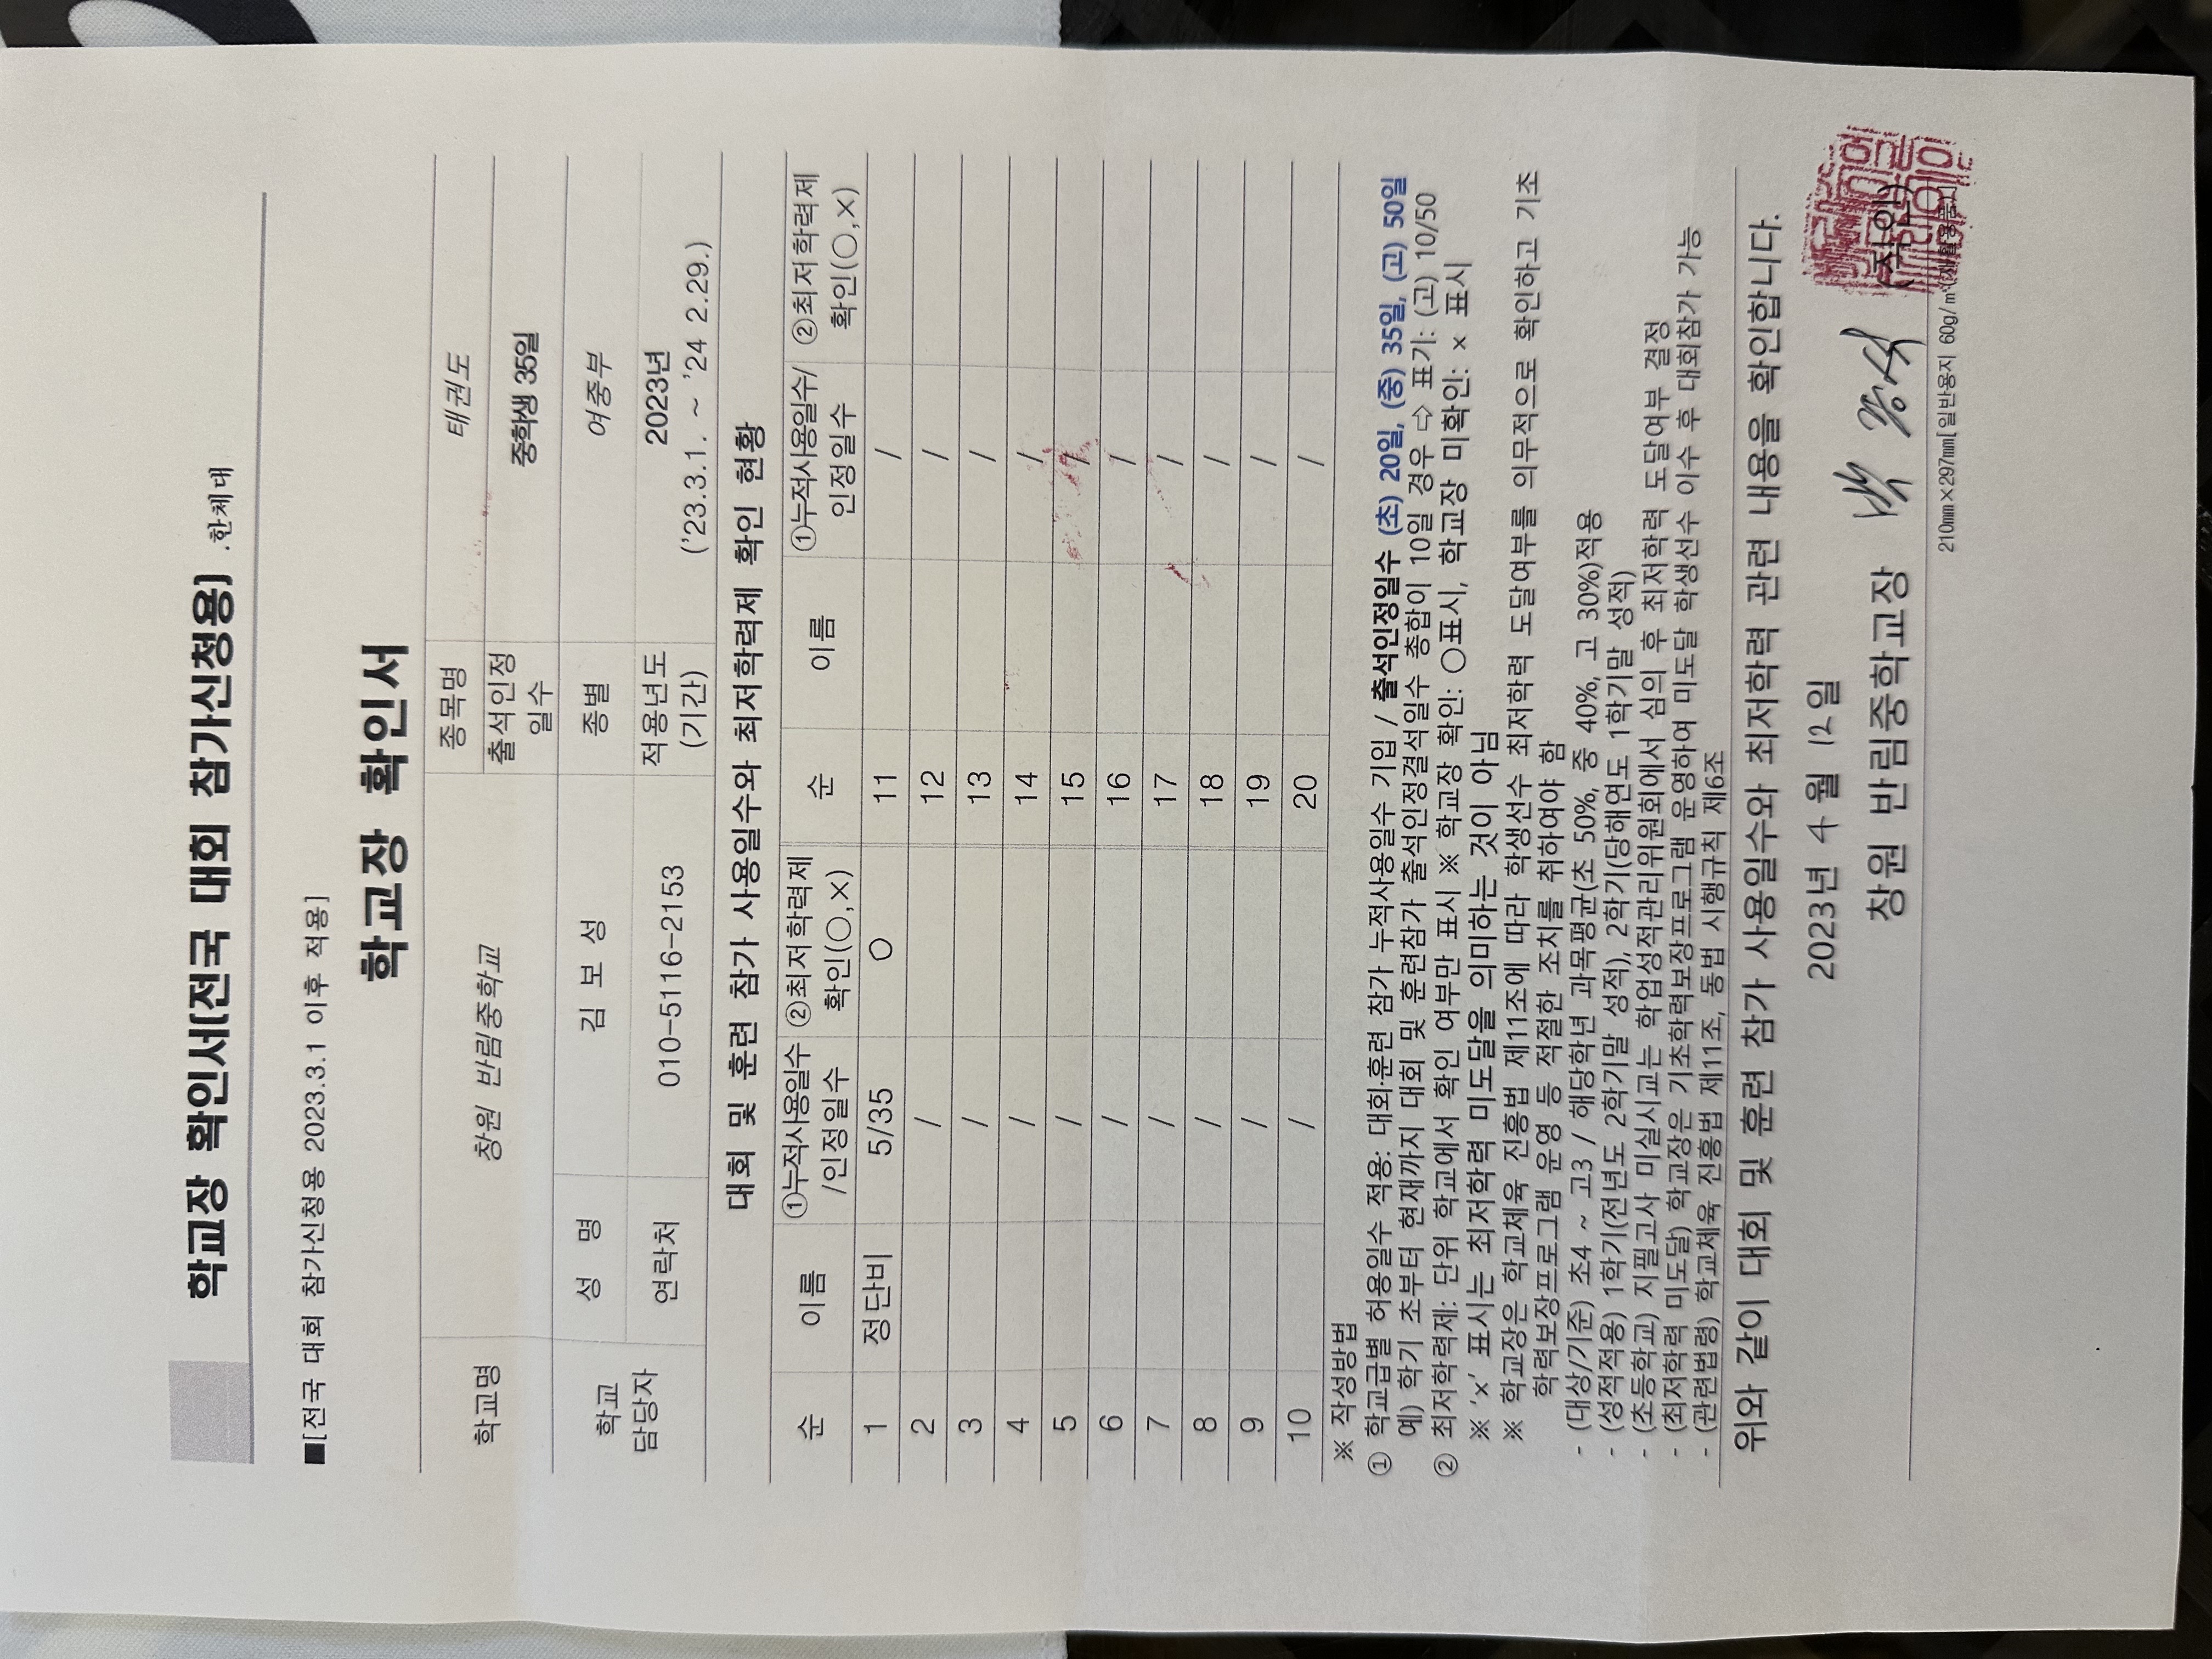 학교장 확인서(전국 대회 참가신청용) .한체대
■[전국 대회 참가신청용 2023.3.1 이후 적용]
학교장 확인서
학교명 창원 반림중학교 종목명 태권도
출석인정 일수 중학생 35일
학교 담당자 성 명 김 보 성 종별 여중부
연락처 010-5116-2153 적용년도 (기간) 2023년 ('23.3.1. ~ '24 2.29.)
대회 및 훈련 참가 사용일수와 최저학력제 확인 현황
순 이름 ①누적사용일수 /인정일수 ②최저학력제 확인(○,×) 순 이름 ①누적사용일수/ 인정일수 ②최저학력제 확인(○,×)
1 정단비 5/35 ○ 11 /
2 / 12 /
3 / 13 /
4 / 14 /
5 / 15 /
6 / 16 /
7 / 17 /
8 / 18 /
9 / 19 /
10 / 20 /
※ 작성방법
① 학교급별 허용일수 적용: 대회·훈련 참가 누적사용일수 기입 / 출석인정일수 (초) 20일, (중) 35일, (고) 50일
예) 학기 초부터 현재까지 대회 및 훈련참가 출석인정결석일수 총합이 10일 경우 ⇨ 표기: (고) 10/50
② 최저학력제: 단위 학교에서 확인 여부만 표시 ※ 학교장 확인: ○표시, 학교장 미확인: × 표시
※ '×' 표시는 최저학력 미도달을 의미하는 것이 아님
※ 학교장은 학교체육 진흥법 제11조에 따라 학생선수 최저학력 도달여부를 의무적으로 확인하고 기초
학력보장프로그램 운영 등 적절한 조치를 취하여야 함
- (대상/기준) 초4 ~ 고3 / 해당학년 과목평균(초 50%, 중 40%, 고 30%)적용
- (성적적용) 1학기(전년도 2학기말 성적), 2학기(당해연도 1학기말 성적)
- (초등학교) 지필고사 미실시교는 학업성적관리위원회에서 심의 후 최저학력 도달여부 결정
- (최저학력 미도달) 학교장은 기초학력보장프로그램 운영하여 미도달 학생선수 이수 후 대회참가 가능
- (관련법령) 학교체육 진흥법 제11조, 동법 시행규칙 제6조
위와 같이 대회 및 훈련 참가 사용일수와 최저학력 관련 내용을 확인합니다.
2023년 4월 12일
창원 반림중학교장 (직인)
210㎜×297㎜[일반용지 60g/㎡(재활용품)]